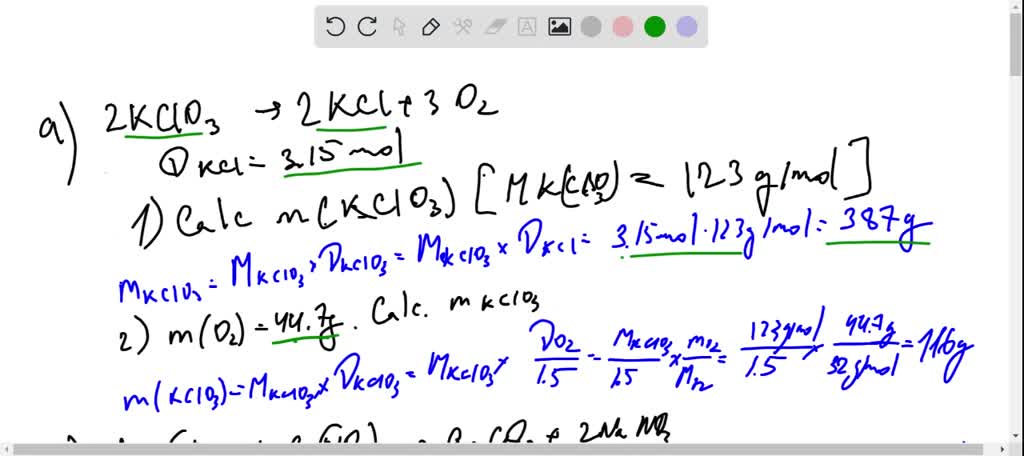 a) 2KClO3 → 2KCl + 3 O2
νKCl = 3.15 mol
1) Calc m(KClO3) [M(KClO3) = 123 g/mol]
mKClO3 = MKClO3 × νKClO3 = MKClO3 × νKCl = 3.15mol · 123g/mol = 387g
2) m(O2) = 44.7g. Calc. mKClO3
m(KClO3) = MKClO3 × νKClO3 = MKClO3 × νO2/1.5 = MKClO3/1.5 × mO2/MO2 = 123g/mol/1.5 × 44.7g/32g/mol = 116g